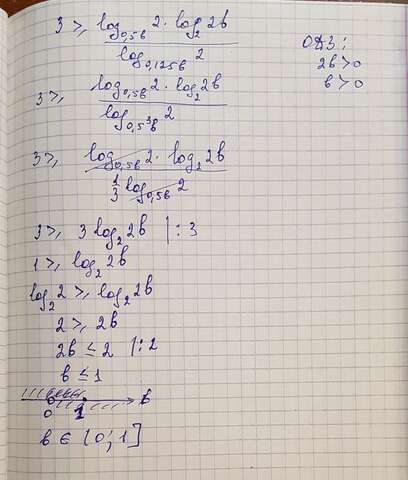 3 ≥ log_{0,5b} 2 · log_2 2b / log_{0,125b} 2
ОДЗ:
2b > 0
b > 0
3 ≥ log_{0,5b} 2 · log_2 2b / log_{0,5^3 b} 2
3 ≥ log_{0,5b} 2 · log_2 2b / 1/3 log_{0,5b} 2
3 ≥ 3 log_2 2b | : 3
1 ≥ log_2 2b
log_2 2 ≥ log_2 2b
2 ≥ 2b
2b ≤ 2 | : 2
b ≤ 1
0 1 b
b ∈ (0; 1]